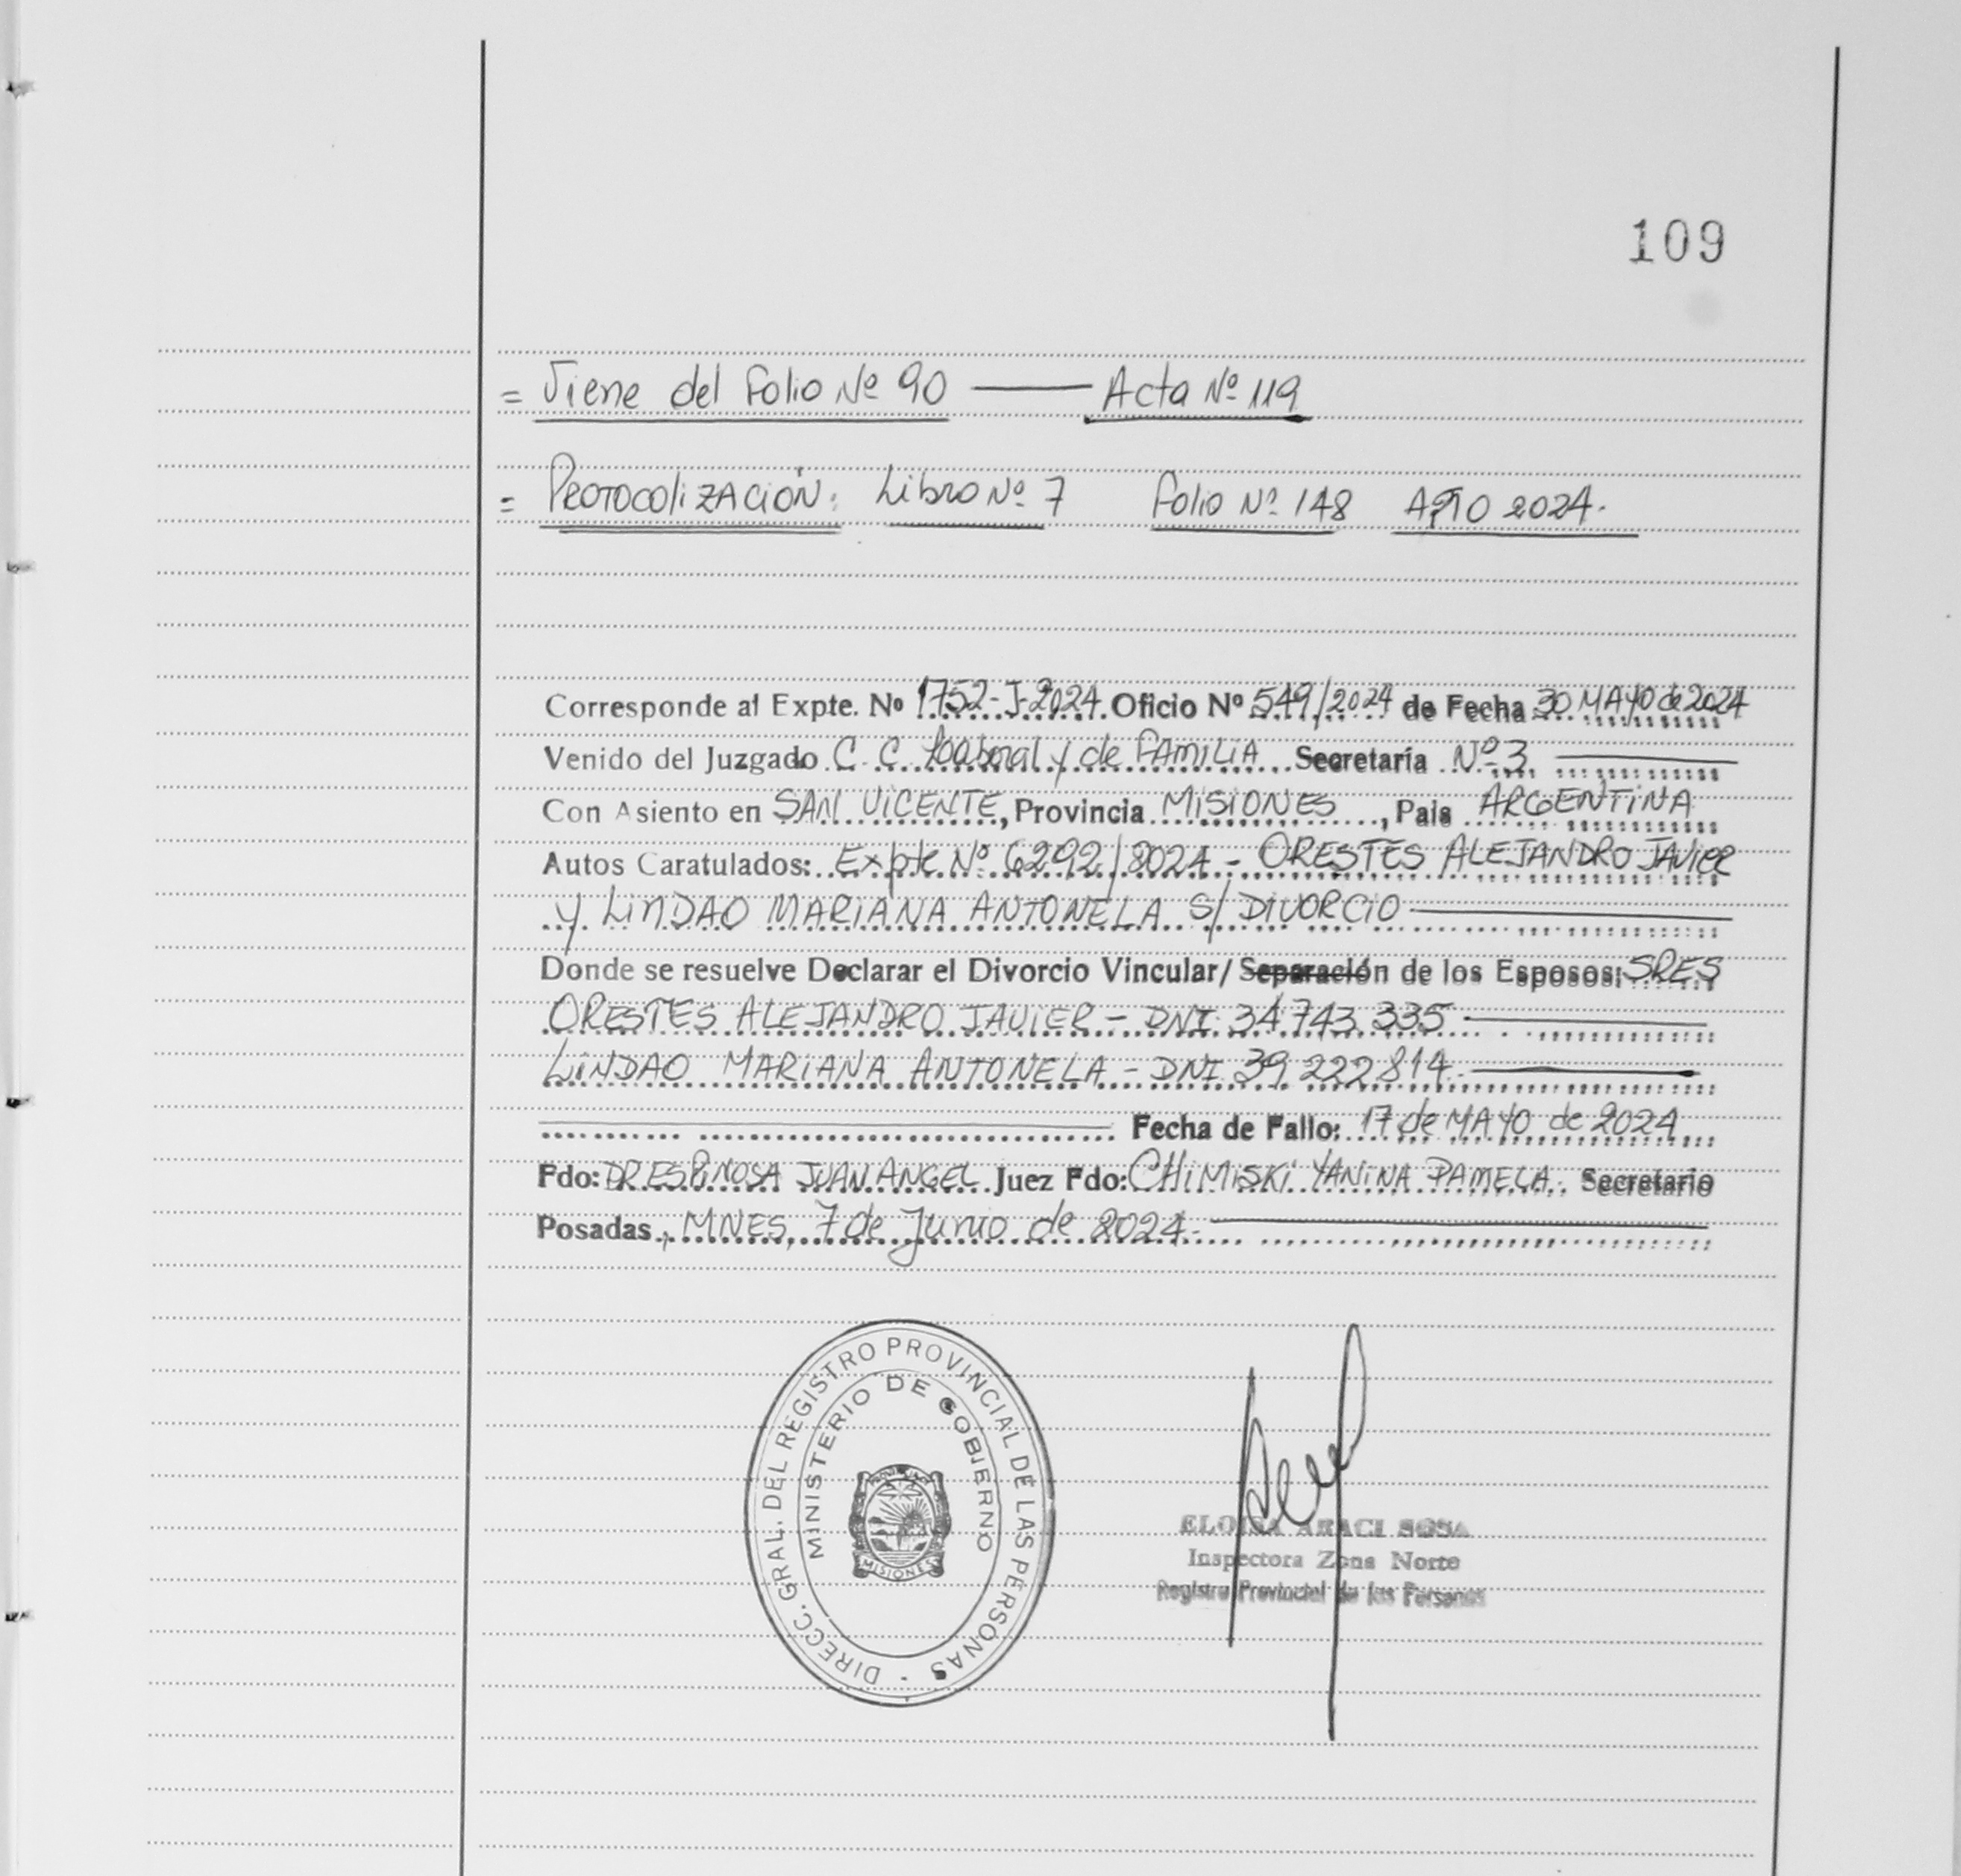 109
= Viene del Folio Nº 90 — Acta Nº 119
= PROTOCOLIZACIÓN: Libro Nº 7 Folio Nº 148 AÑO 2024.
Corresponde al Expte. Nº 1752-J-2024. Oficio Nº 549/2024 de Fecha 30 MAYO de 2024
Venido del Juzgado C. C. Laboral y de FAMILIA Secretaría Nº 3
Con Asiento en SAN VICENTE, Provincia MISIONES, Pais ARGENTINA
Autos Caratulados: Expte Nº 6292/2024 - ORESTES ALEJANDRO JAVIER
y LINDAO MARIANA ANTONELA S/ DIVORCIO
Donde se resuelve Declarar el Divorcio Vincular/ Separación de los Esposos: SRES
ORESTES ALEJANDRO JAVIER - DNI 34.743.335
LINDAO MARIANA ANTONELA - DNI 39.222.814
Fecha de Fallo: 17 de MAYO de 2024
Fdo: DR ESPINOSA JUAN ANGEL Juez Fdo: CHIMISKI YANINA PAMELA. Secretario
Posadas, MNES, 7 de Junio de 2024.
DIRECC. GRAL. DEL REGISTRO PROVINCIAL DE LAS PERSONAS
MINISTERIO DE GOBIERNO
MISIONES
ELOISA ARACI SOSA
Inspectora Zona Norte
Registro Provincial de las Personas